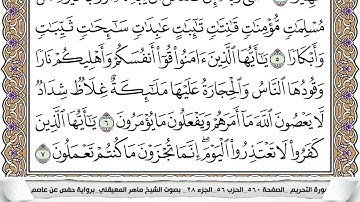 مُسْلِمَٰتٍ مُّؤْمِنَٰتٍ قَٰنِتَٰتٍ تَٰٓئِبَٰتٍ عَٰبِدَٰتٍ سَٰٓئِحَٰتٍ ثَيِّبَٰتٍ
وَأَبْكَارًا ٥ يَٰٓأَيُّهَا ٱلَّذِينَ ءَامَنُوا۟ قُوٓا۟ أَنفُسَكُمْ وَأَهْلِيكُمْ نَارًا
وَقُودُهَا ٱلنَّاسُ وَٱلْحِجَارَةُ عَلَيْهَا مَلَٰٓئِكَةٌ غِلَاظٌ شِدَادٌ
لَّا يَعْصُونَ ٱللَّهَ مَآ أَمَرَهُمْ وَيَفْعَلُونَ مَا يُؤْمَرُونَ ٦ يَٰٓأَيُّهَا ٱلَّذِينَ
كَفَرُوا۟ لَا تَعْتَذِرُوا۟ ٱلْيَوْمَ ۖ إِنَّمَا تُجْزَوْنَ مَا كُنتُمْ تَعْمَلُونَ ٧
ورة التحريم _ الصفحة ٥٦٠ الحزب ٥٦ الجزء ٢٨ _ بصوت الشيخ ماهر المعيقلي _ برواية حفص عن عاصم